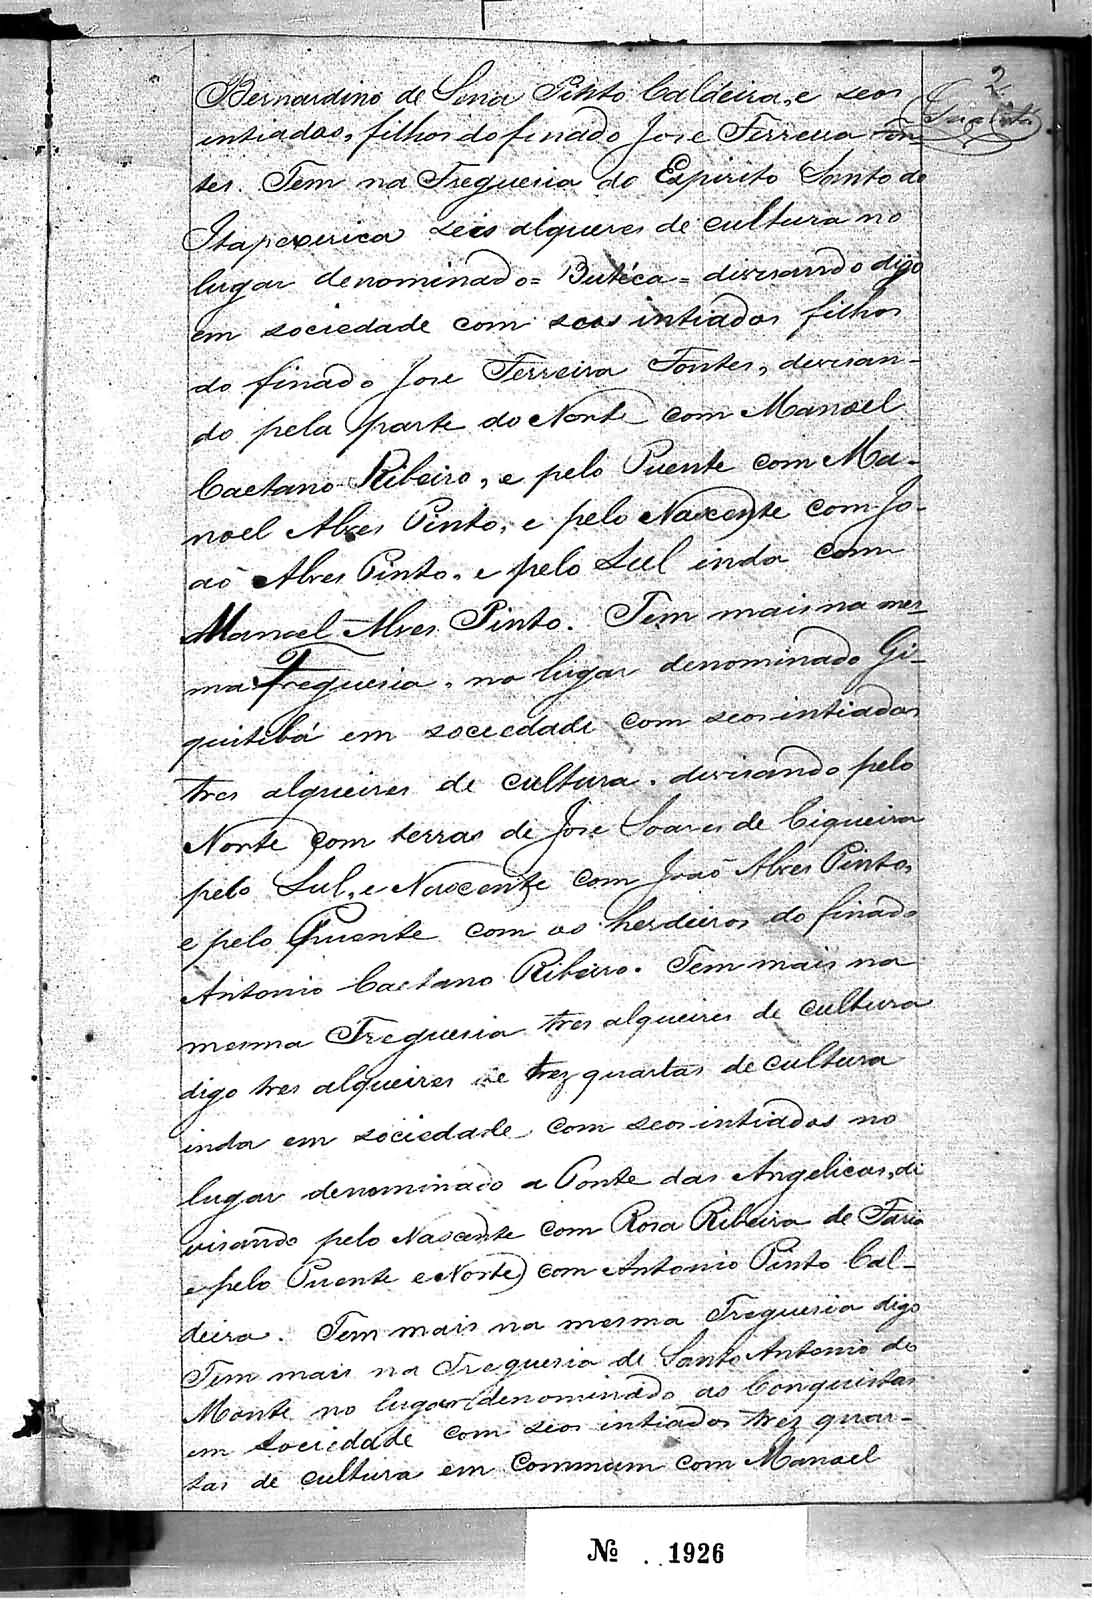 2
Bernardino de Sena Pinto Caldeira, e seos
intiados, filhos do finado Jose Ferreira Fon-
tes. Tem na Freguesia do Espirito Santo do
Itapecerica seis alqueres de cultura no
lugar denominado = Butéca = devisando digo
em sociedade com seos intiados filhos
do finado Jose Ferreira Fontes, devisan-
do pela parte do Norte com Manoel
Caetano Ribeiro, e pelo Puente com Ma-
noel Alves Pinto, e pelo Nascente com Jo-
aõ Alves Pinto, e pelo Sul inda com
Manoel Alves Pinto. Tem mais na mes
ma Freguesia, no lugar denominado Gi-
quitibá em sociedade com seos intiados
tres alqueires de cultura, devisando pelo
Norte com terras de Jose Soares de Ciqueira
pelo Sul, e Nascente com João Alves Pinto,
e pelo Puente com os herdeiros do finado
Antonio Caetano Ribeiro. Tem mais na
mesma Freguesia tres alqueires de cultura
digo tres alqueires e trez quartas de cultura
inda em sociedade com seos intiados no
lugar denominado a Ponte das Angelicas, di
visando pelo Nascente com Rosa Ribeira de Faria
e pelo Puente e Norte com Antonio Pinto Cal-
deira. Tem mais na mesma Freguesia digo
Tem mais na Freguesia de Santo Antonio do
Monte no lugar denominado as Conquistas
em sociedade com seos intiados trez quar-
tas de cultura em commum com Manoel
Nº 1926